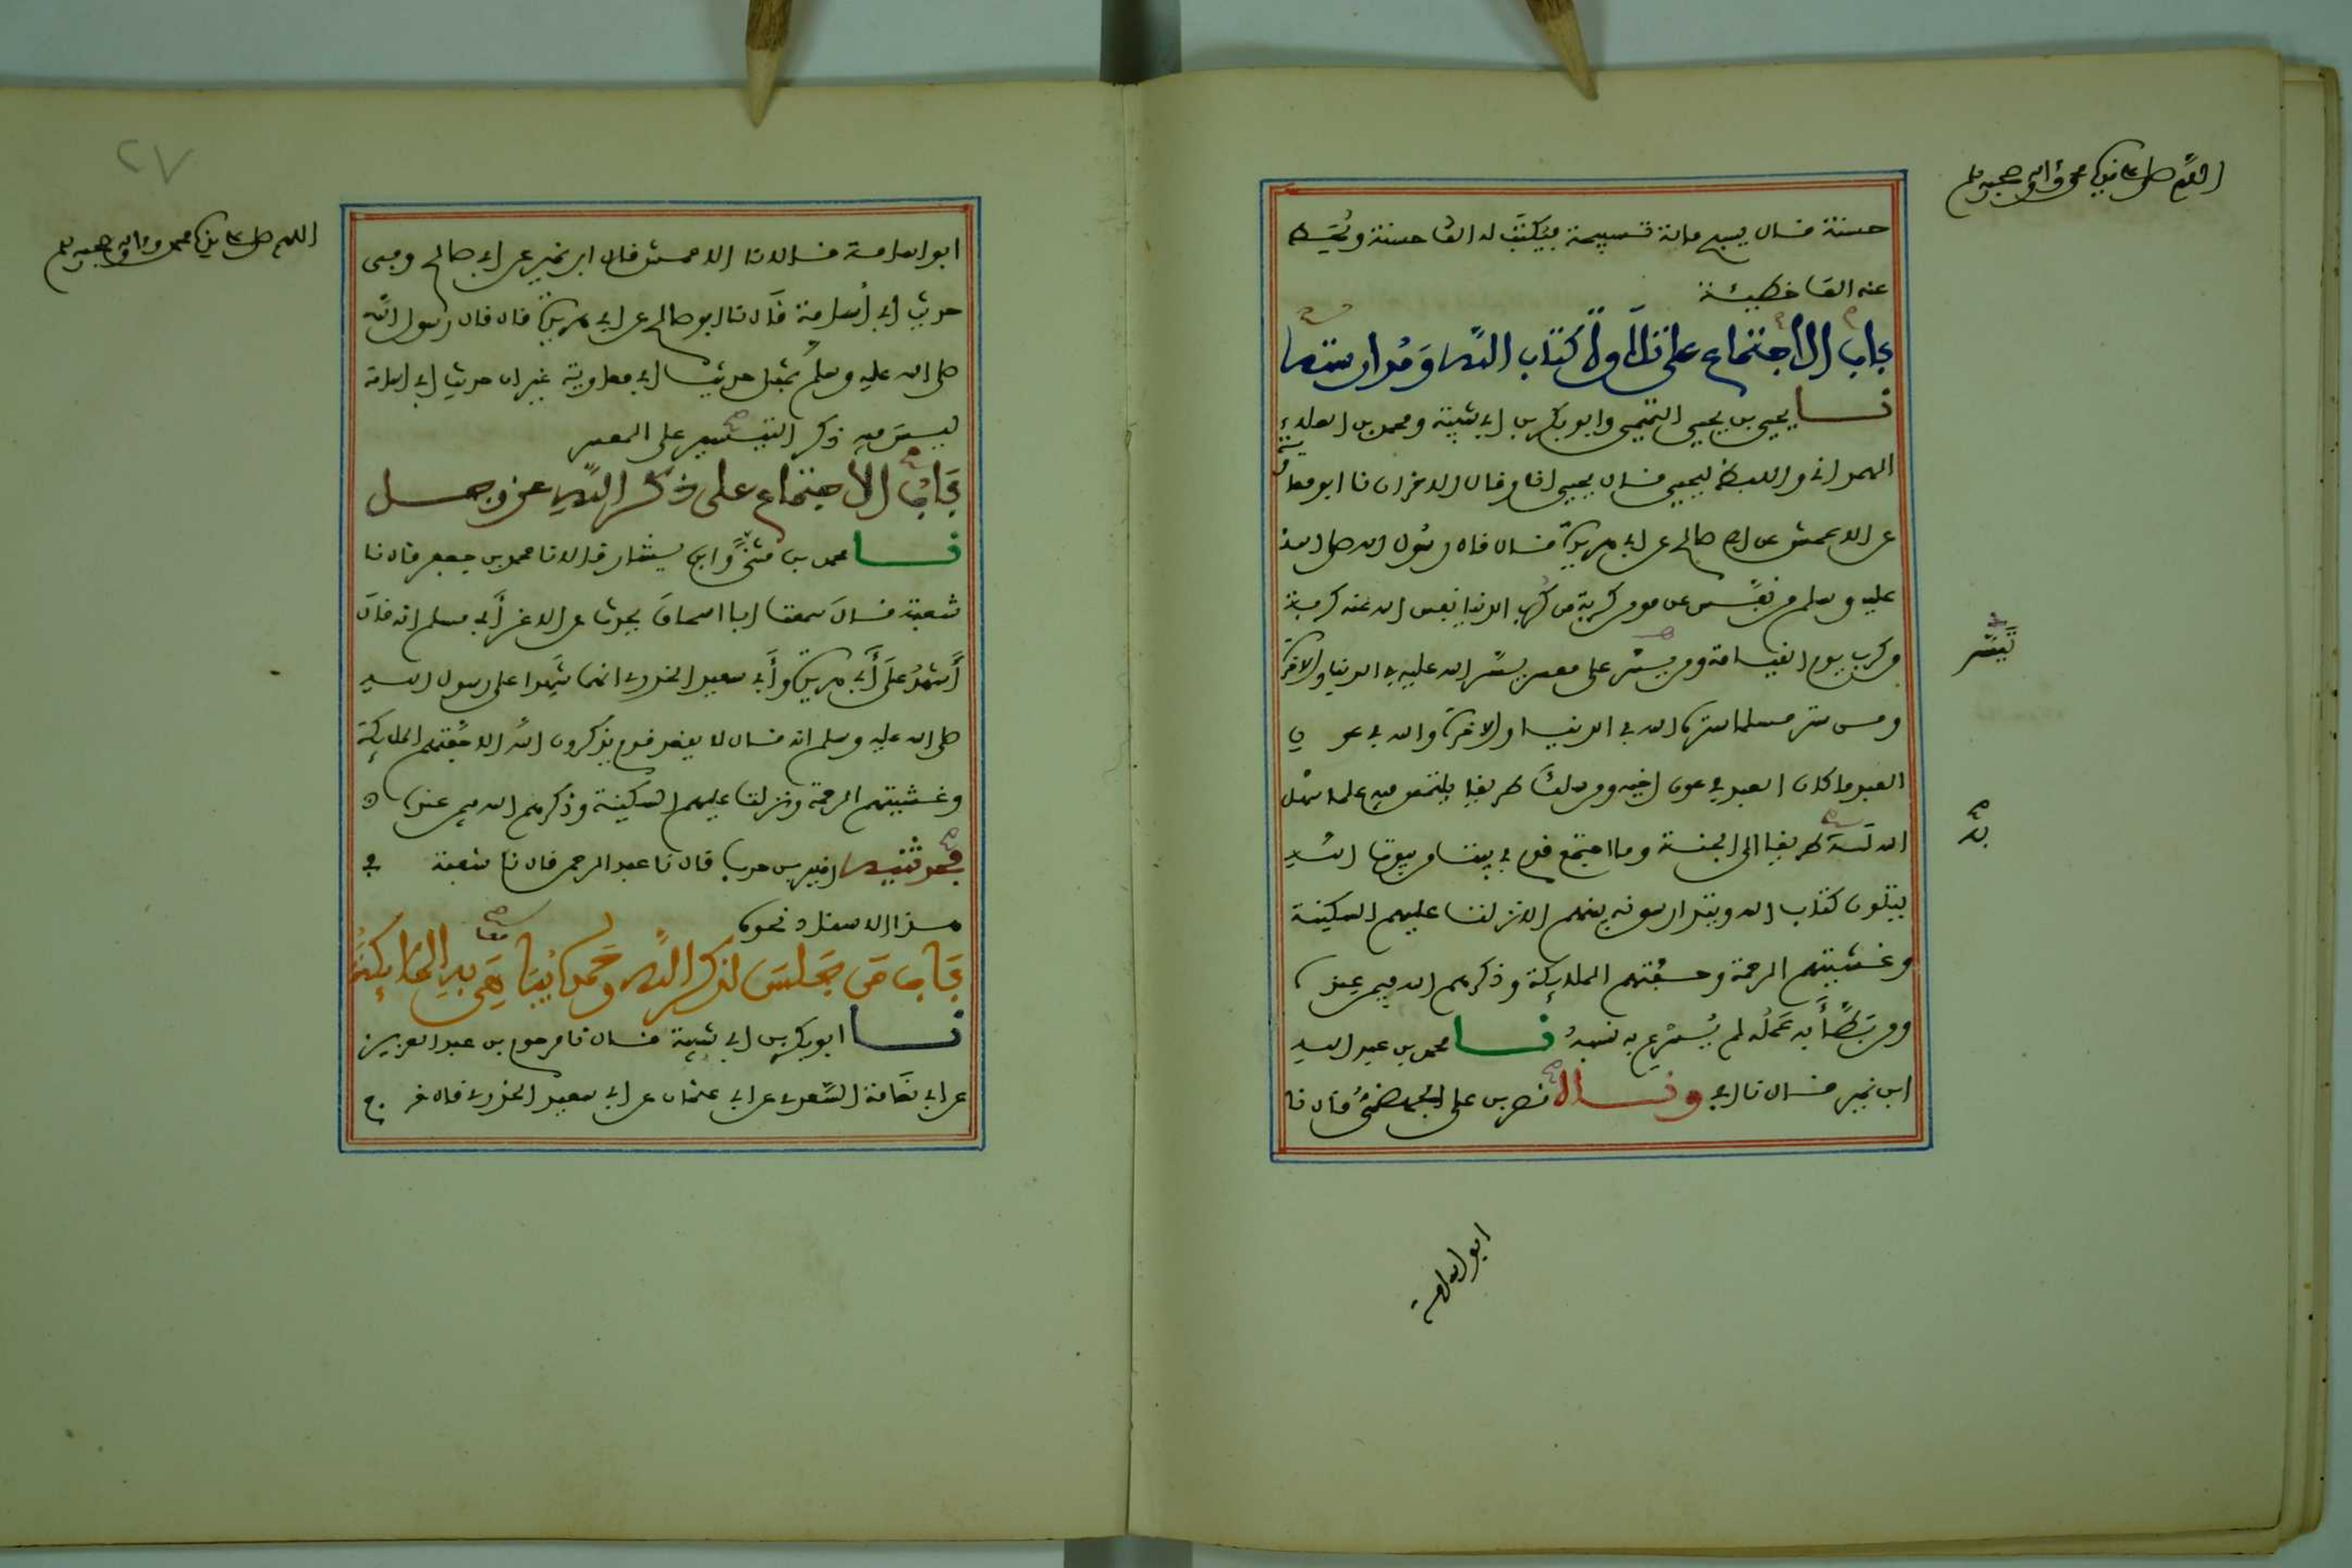 اللهم صل على نبيك محمد وآله وصحبه وسلم
حسنة فــال يسبح مائة تسبيحة فيكتب له الف حسنة ويُحَط
عنه الف خطيئــة
باب الاجتماع على تلاوة كتاب الله ومدارسته
نــا يحيى بن يحيى التميمي وابو بكر بن ابي شيبة ومحمد بن العلاء
الهمداني واللفظ ليحيى فــال يحيى انا وفال الاخران نا ابو معاوية
عن الاعمش عن ابي صالح عن ابي هريرة فــال فال رسول الله صلى الله
عليه وسلم من نفس عن مومن كربة من كرب الدنيا نفس الله عنه كربة
من كرب يوم القيــامة ومن يسّر على معسر يسّر الله عليه في الدنيا والاخرة
تيسّر
ومــن ستر مسلما ستره الله في الدنيــا والاخرة والله في عون
العبد ما كان العبد في عون اخيه ومن سلك طريقا يلتمس فيه علما سهل
الله له طريقا الى الجنــة وما اجتمع فوم في بيت من بيوت الله
به
يتلون كتاب الله ويتدارسونه بينهم الا نزلت عليهم السكينة
وغــشيتهم الرحمة وحــفتهم الملائكة وذكرهم الله فيمن عنده
ومن بَطَّأَ به عَمَلُه لم يُسرع به نسبهُ نــا محمد بن عبد الله
ابن نمير فــال نا ابي ونــاه نصر بن علي الجهضمي فال نا
ابو اسامة
٢٧
اللهم صل على نبيك محمد وآله وصحبه وسلم
ابو اسامــة فــالا نا الاعمش فال ابن نمير عن ابي صالح وفي
حديث ابي اُسامة فال نا ابو صالح عن ابي هريرة فال فال رسول الله
صلى الله عليه وسلم بمثل حديث ابي معاوية غير ان حديث ابي اسامة
ليــس فيه ذكر التيسير على المعسر
باب الاجتماع على ذكر الله عز وجــل
نــا محمد بن مثنى وابن بشار فــالا نا محمد بن جعفر فال نا
شعبة فــال سمعت ابا اسحاق يحدث عن الاغر أبي مسلم انه فال
أشهدُ على أبي هريرة وأبي سعيد الخدري انهما شهدا على رسول الله
صلى الله عليه وسلم انه فــال لا يقعد فوم يذكرون الله الا حفتهم الملائكة
وغــشيتهم الرحمة ونزلت عليهم السكينة وذكرهم الله فيمن عنده
وحدثنيه زهير بن حرب فال نا عبد الرحمن فال نا شعبة في
هــذا الاسناد نحوه
باب من جلس لذكر الله وحمده يباهي به الملائكة
معا
نــا ابو بكر بن ابي شيبة فــال نا مرحوم بن عبد العزيز
عن ابي نعامة السعدي عن ابي عثمان عن ابي سعيد الخدري فال خرج